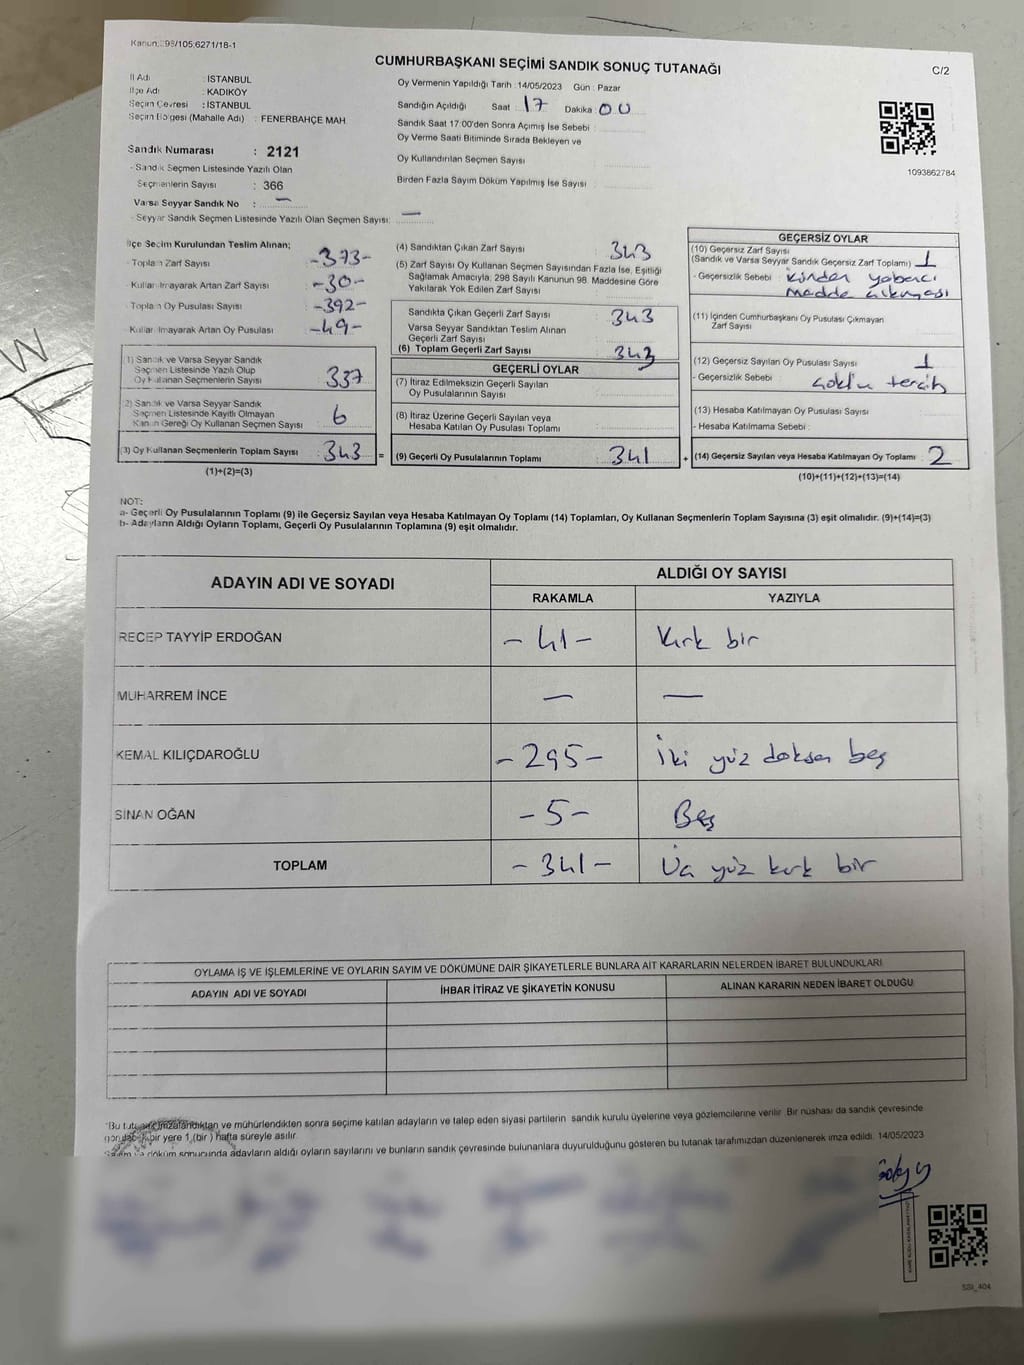 Kanun: 298/105;6271/18-1
CUMHURBAŞKANI SEÇİMİ SANDIK SONUÇ TUTANAĞI
C/2
İl Adı : İSTANBUL
İlçe Adı : KADIKÖY
Seçim Çevresi : İSTANBUL
Seçim Bölgesi (Mahalle Adı) : FENERBAHÇE MAH.
Sandık Numarası : 2121
- Sandık Seçmen Listesinde Yazılı Olan
Seçmenlerin Sayısı : 366
Varsa Seyyar Sandık No : —
- Seyyar Sandık Seçmen Listesinde Yazılı Olan Seçmen Sayısı: —
Oy Vermenin Yapıldığı Tarih : 14/05/2023 Gün : Pazar
Sandığın Açıldığı Saat : 17 Dakika : 00
Sandık Saat 17:00'den Sonra Açımış İse Sebebi :
Oy Verme Saati Bitiminde Sırada Bekleyen ve
Oy Kullandırılan Seçmen Sayısı
Birden Fazla Sayım Döküm Yapılmış İse Sayısı :
1093862784
İlçe Seçim Kurulundan Teslim Alınan;
- Toplam Zarf Sayısı : -373-
- Kullanılmayarak Artan Zarf Sayısı : -30-
- Toplam Oy Pusulası Sayısı : -392-
- Kullanılmayarak Artan Oy Pusulası : -49-
1) Sandık ve Varsa Seyyar Sandık
Seçmen Listesinde Yazılı Olup
Oy Kullanan Seçmenlerin Sayısı : 337
2) Sandık ve Varsa Seyyar Sandık
Seçmen Listesinde Kayıtlı Olmayan
Kanun Gereği Oy Kullanan Seçmen Sayısı : 6
(3) Oy Kullanan Seçmenlerin Toplam Sayısı : 343 =
(1)+(2)=(3)
(4) Sandıktan Çıkan Zarf Sayısı : 343
(5) Zarf Sayısı Oy Kullanan Seçmen Sayısından Fazla İse, Eşitliği
Sağlamak Amacıyla, 298 Sayılı Kanunun 98. Maddesine Göre
Yakılarak Yok Edilen Zarf Sayısı :
Sandıkta Çıkan Geçerli Zarf Sayısı : 343
Varsa Seyyar Sandıktan Teslim Alınan
Geçerli Zarf Sayısı :
(6) Toplam Geçerli Zarf Sayısı : 343
GEÇERLİ OYLAR
(7) İtiraz Edilmeksizin Geçerli Sayılan
Oy Pusulalarının Sayısı :
(8) İtiraz Üzerine Geçerli Sayılan veya
Hesaba Katılan Oy Pusulası Toplamı :
(9) Geçerli Oy Pusulalarının Toplamı : 341 +
GEÇERSİZ OYLAR
(10) Geçersiz Zarf Sayısı
(Sandık ve Varsa Seyyar Sandık Geçersiz Zarf Toplamı) : 1
- Geçersizlik Sebebi : içinden yabancı
madde çıkması
(11) İçinden Cumhurbaşkanı Oy Pusulası Çıkmayan
Zarf Sayısı :
(12) Geçersiz Sayılan Oy Pusulası Sayısı : 1
- Geçersizlik Sebebi : çoklu tercih
(13) Hesaba Katılmayan Oy Pusulası Sayısı :
- Hesaba Katılmama Sebebi :
(14) Geçersiz Sayılan veya Hesaba Katılmayan Oy Toplamı : 2
(10)+(11)+(12)+(13)=(14)
NOT:
a- Geçerli Oy Pusulalarının Toplamı (9) ile Geçersiz Sayılan veya Hesaba Katılmayan Oy Toplamı (14) Toplamları, Oy Kullanan Seçmenlerin Toplam Sayısına (3) eşit olmalıdır. (9)+(14)=(3)
b- Adayların Aldığı Oyların Toplamı, Geçerli Oy Pusulalarının Toplamına (9) eşit olmalıdır.
ADAYIN ADI VE SOYADI
ALDIĞI OY SAYISI
RAKAMLA YAZIYLA
RECEP TAYYİP ERDOĞAN -41- Kırk bir
MUHARREM İNCE — —
KEMAL KILIÇDAROĞLU -295- İki yüz doksan beş
SİNAN OĞAN -5- Beş
TOPLAM -341- Üç yüz kırk bir
OYLAMA İŞ VE İŞLEMLERİNE VE OYLARIN SAYIM VE DÖKÜMÜNE DAİR ŞİKAYETLERLE BUNLARA AİT KARARLARIN NELERDEN İBARET BULUNDUKLARI
ADAYIN ADI VE SOYADI İHBAR İTİRAZ VE ŞİKAYETİN KONUSU ALINAN KARARIN NEDEN İBARET OLDUĞU
"Bu tutanak imzalandıktan ve mühürlendikten sonra seçime katılan adayların ve talep eden siyasi partilerin sandık kurulu üyelerine veya gözlemcilerine verilir. Bir nüshası da sandık çevresinde
görülebilir bir yere 1 (bir) hafta süreyle asılır.
Sayım ve döküm sonucunda adayların aldığı oyların sayılarını ve bunların sandık çevresinde bulunanlara duyurulduğunu gösteren bu tutanak tarafımızdan düzenlenerek imza edildi. 14/05/2023
SSI_404